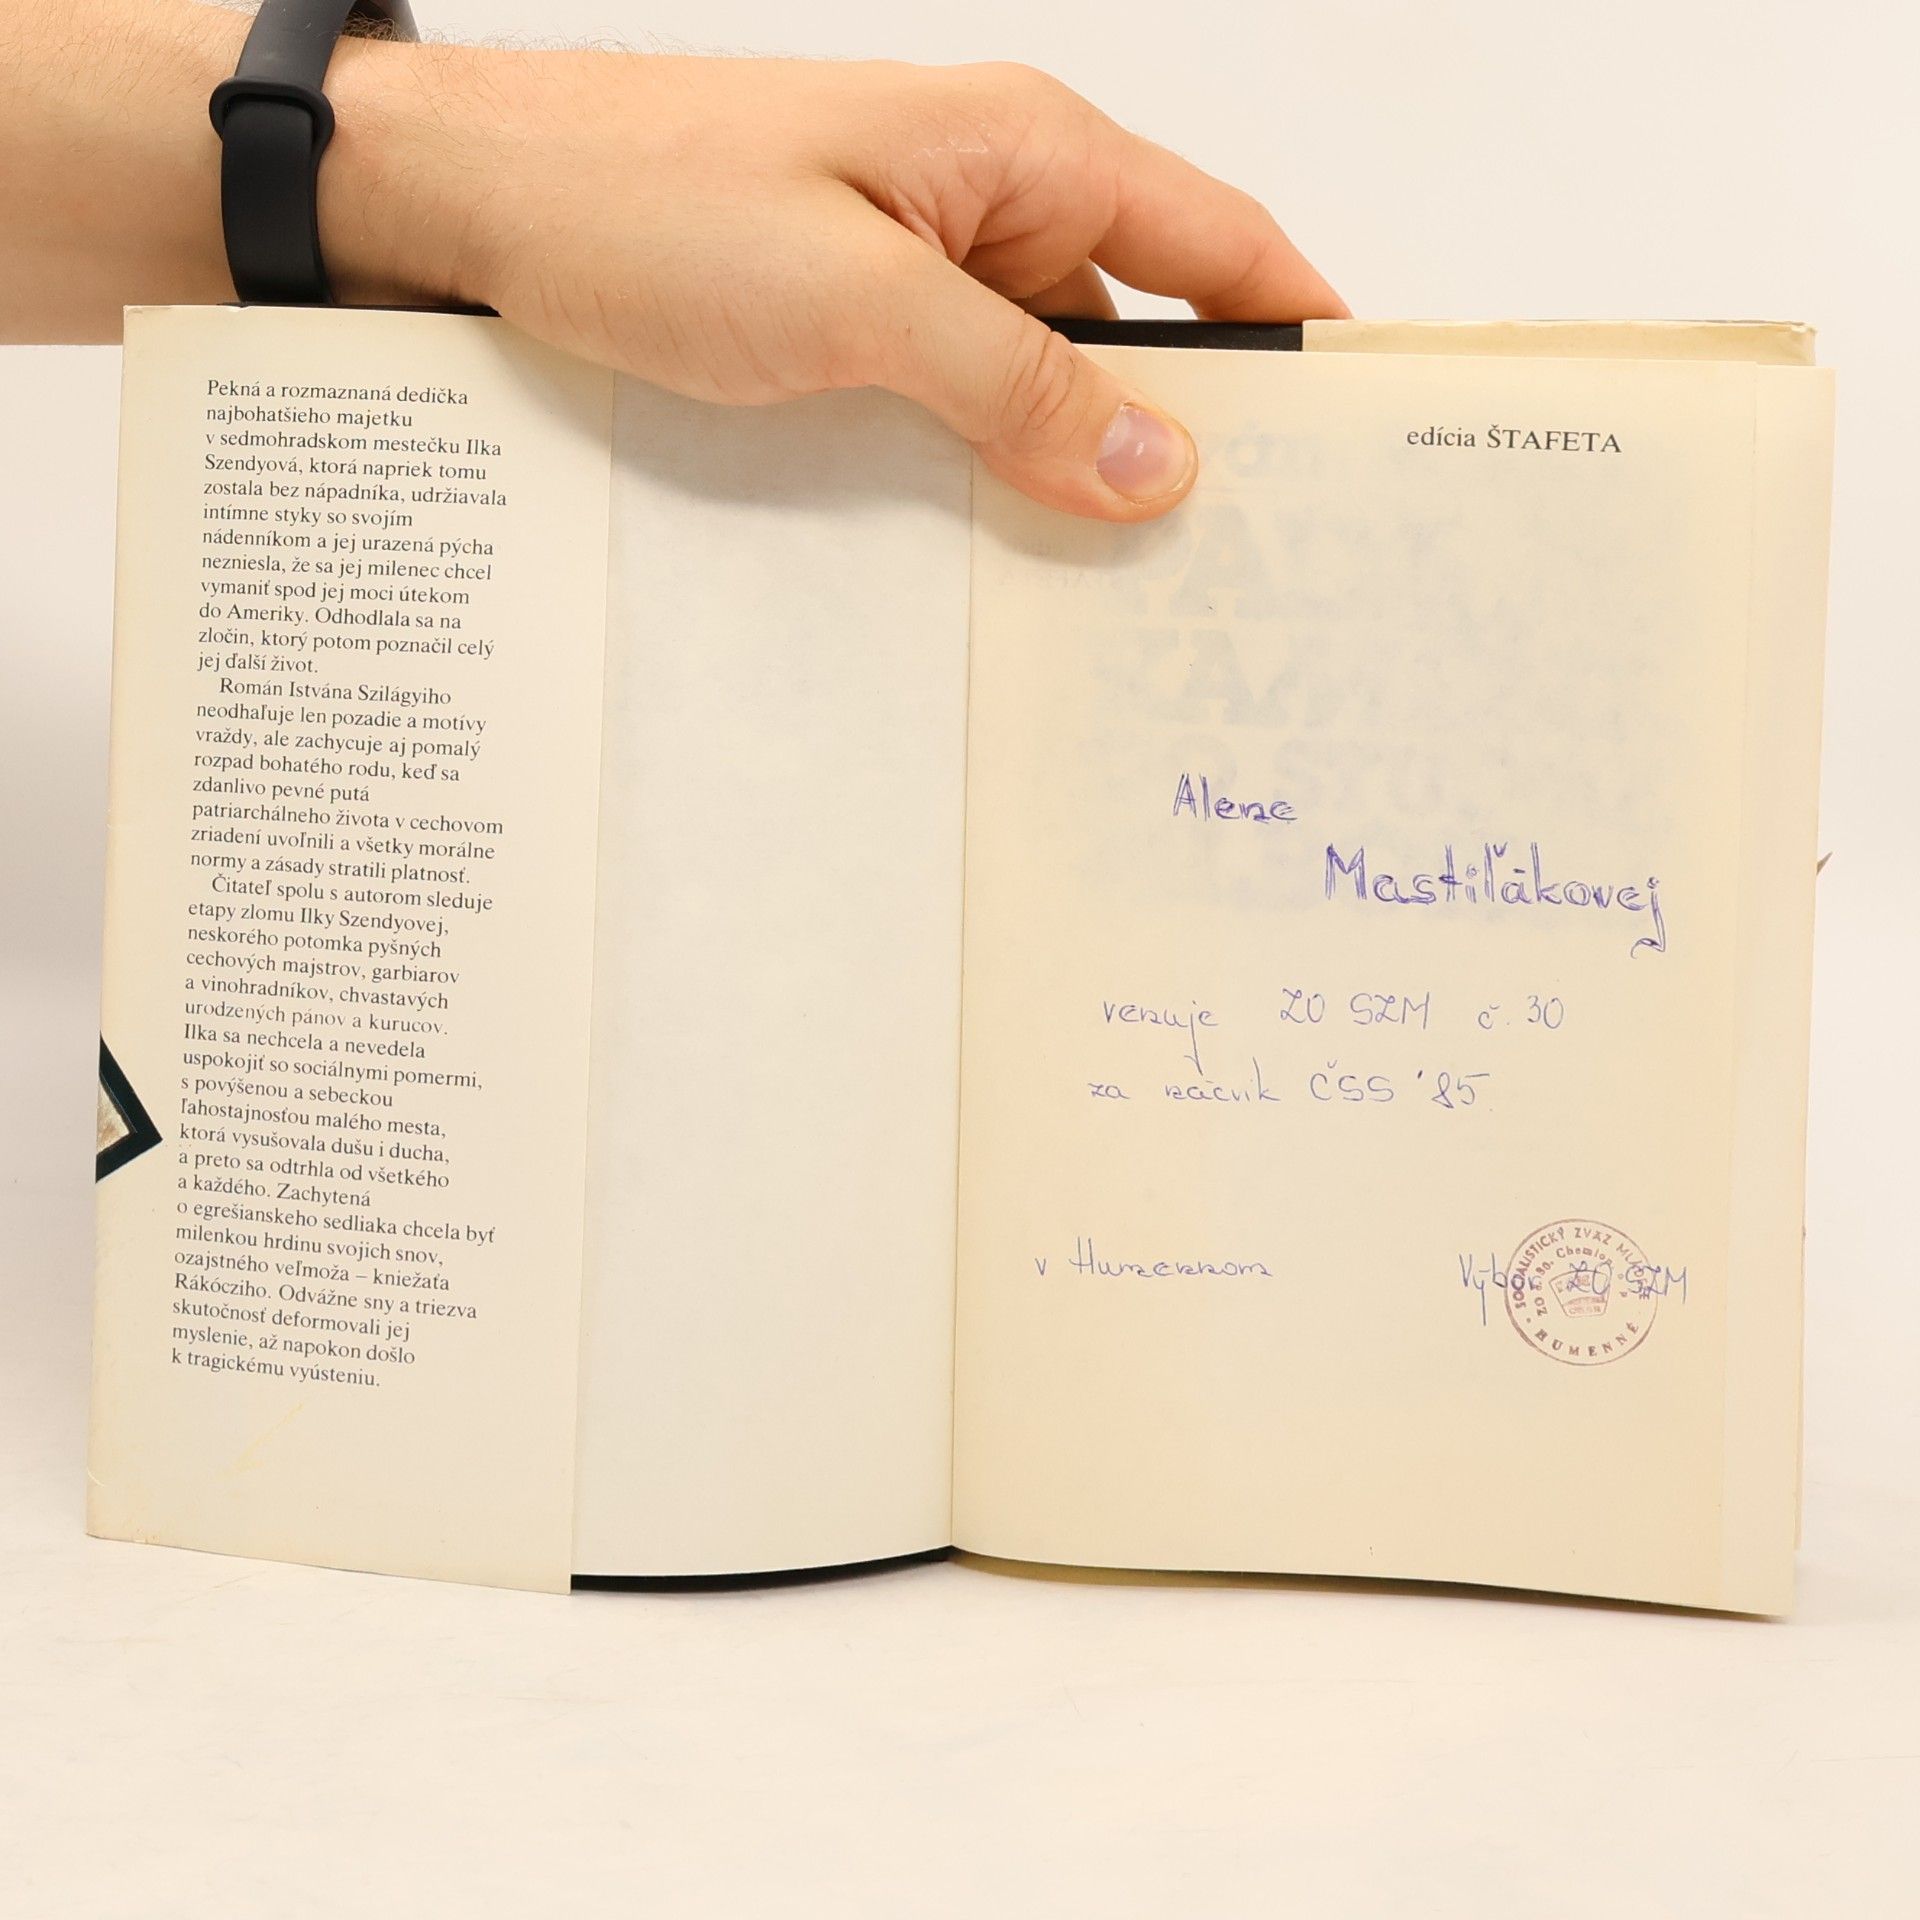 Pekná a rozmaznaná dedička
najbohatšieho majetku
v sedmohradskom mestečku Ilka
Szendyová, ktorá napriek tomu
zostala bez nápadníka, udržiavala
intímne styky so svojím
nádenníkom a jej urazená pýcha
nezniesla, že sa jej milenec chcel
vymaniť spod jej moci útekom
do Ameriky. Odhodlala sa na
zločin, ktorý potom poznačil celý
jej ďalší život.
Román Istvána Szilágyiho
neodhaľuje len pozadie a motívy
vraždy, ale zachycuje aj pomalý
rozpad bohatého rodu, keď sa
zdanlivo pevné putá
patriarchálneho života v cechovom
zriadení uvoľnili a všetky morálne
normy a zásady stratili platnosť.
Čitateľ spolu s autorom sleduje
etapy zlomu Ilky Szendyovej,
neskorého potomka pyšných
cechových majstrov, garbiarov
a vinohradníkov, chvastavých
urodzených pánov a kurucov.
Ilka sa nechcela a nevedela
uspokojiť so sociálnymi pomermi,
s povýšenou a sebeckou
ľahostajnosťou malého mesta,
ktorá vysušovala dušu i ducha,
a preto sa odtrhla od všetkého
a každého. Zachytená
o egrešianskeho sedliaka chcela byť
milenkou hrdinu svojich snov,
ozajstného veľmoža – kniežaťa
Rákócziho. Odvážne sny a triezva
skutočnosť deformovali jej
myslenie, až napokon došlo
k tragickému vyústeniu.
edícia ŠTAFETA
Alene
Mastiľákovej
venuje ZO SZM č. 30
za nácvik ČSS '85
v Humennom
Výbor ZO SZM
SOCIALISTICKÝ ZVÄZ MLÁDEŽE
ZO č. 30. Chemlon
HUMENNÉ